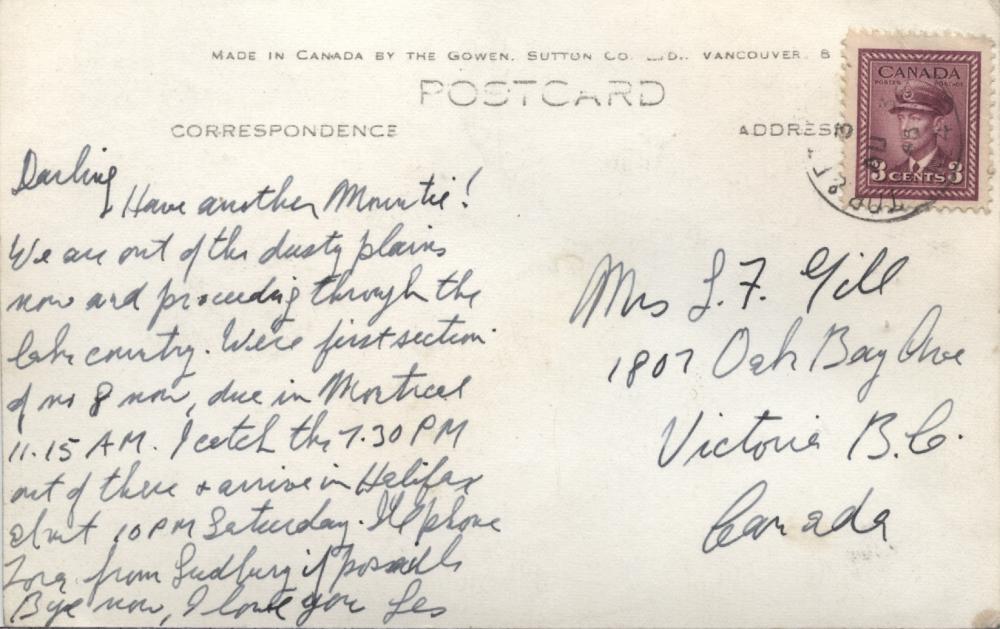 MADE IN CANADA BY THE GOWEN, SUTTON CO. LTD., VANCOUVER, B
POSTCARD
CORRESPONDENCE
ADDRESS
CANADA
POSTES POSTAGE
3 CENTS 3
Darling
Have another Mountie!
We are out of the dusty plains
now and proceeding through the
lake country. We're first section
of no 8 now, due in Montreal
11.15 AM. I catch the 7.30 PM
out of there + arrive in Halifax
about 10 PM Saturday. I'll phone
from Sudbury if possible
Bye now, I love you Les
Mrs L. F. Gill
1807 Oak Bay Ave
Victoria B.C.
Canada